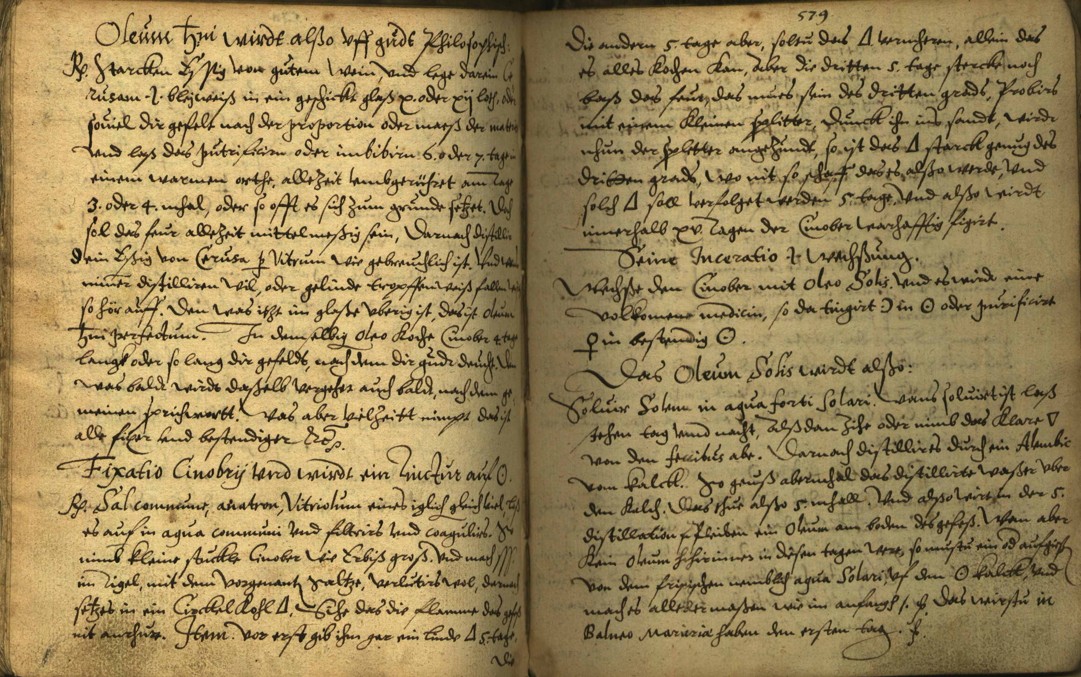 Oleum ♄ni wirdt also uff gudt Philosophisch:
Rp. Starcken Essig von gutem Wein und lege darein Ce
rusam .i. bleÿweiß in ein geschickt glaß x. oder xij loth, oder
souiel dir gefelt nach der proportion oder maeß der mate
und laß das putrificirn oder imbibirn 6. oder 7. tage
einem warmen orthe, allezeit umbgerühret am tag
3. oder 4. mhal, oder so offt es sich zum grunde setzet.
sol das feur allezeit mittelmeßig sein, Darnach distilli
dein Essig von Cerusa p Vitrum wie gebreuchlich ist.
nimer distilliren wil, oder gelinde tropffenweiß fallen
so hör auff. Den was itzt im glaße uberig ist, das ist oleum
♄ni perfectum. In demselbig oleo koche Cinober 4. tage
langk oder so lang dir gefeldt, nach dem dir gudt deucht.
was baldt wirdt dasselb vergehet auch baldt, nach dem ge
meinen sprichwortt. Was aber viel zeitt nimpt das ist
alle fixer und bestendiger
Fixatio Cinobrij und wirdt ein Tinctur auf ☉.
Rp. Sal commune, anatron, Vitriolum eines iglich gleich viel
es auf in aqua communi und filtrirs und coagulirs. So
nimb kleine stuckle Cinober wie Erbiß groß. und mach SSS
im tigel, mit dem vorgenant saltze, verlutirs wol, darnach
setzes in ein Circkel Kohl 🜂, Siehe das die flamme das gefeß
nit anrhüre. Item. vor erst gib ihm gar ein linde 🜂 5. tage.
Die
579
Die andern 5. tage aber, soltu das 🜂 vermheren, allein das
es alles kochen kan, Aber die dritten 5. tage stercke noch
baß das feur, das mues sein des dritten grads, Probirs
mit einem kleinen splitter, Dunck ihn ins sandt, wirdt
nhun der splitter angezundt, so ist das 🜂 starck genug des
dritten grads, wo nit so schaff das es also werde, und
solch 🜂 soll verfolget werden 5. tage, und also wirdt
innerhalb xv. tagen der Cinober warhafftig figirt.
Seine Inceratio .i. wechßung.
Wechße den Cinober mit oleo Solis, und es wirdt eine
volkomene medicin, so da tingirt ☽ in ☉ oder purificirte
♀ in bestendig ☉.
Das Oleum Solis wirdt also:
Soluir Solem in aqua forti solari. wans soluirt ist laß
stehen tag und nacht, Alßdan zihe oder nimb das klare 🜄
von den fecibus abe. Darnach distillirs durch ein Alembic
vom kalck. So geuß abermhal das distillirte waßer uber
den kalch. Das thue also 5. mhall. Und also wirt in der 5.
distillation pleiben ein Oleum am boden des gefeß. Wan aber
kein Oleum schirinnen in disen tagen were, so mustu ein 🜄 aufgießen
von dem frischen nemblich aqua solari, uf den ☉ kalck, und
mach es allerermaßen wie im anfangk Das wirstu in
Balneo Mariæ haben den ersten tag.